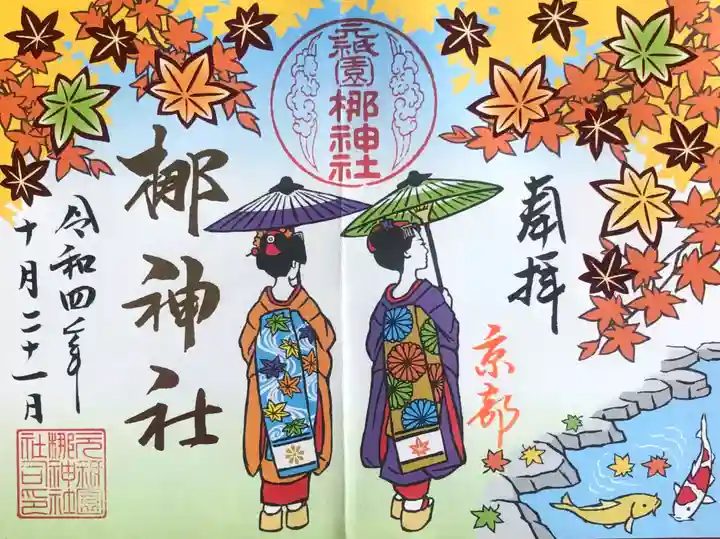 奉拝
京都
元祇園
梛神社
梛神社
令和四年
十月二十一日
元祇園
梛神社
社之印